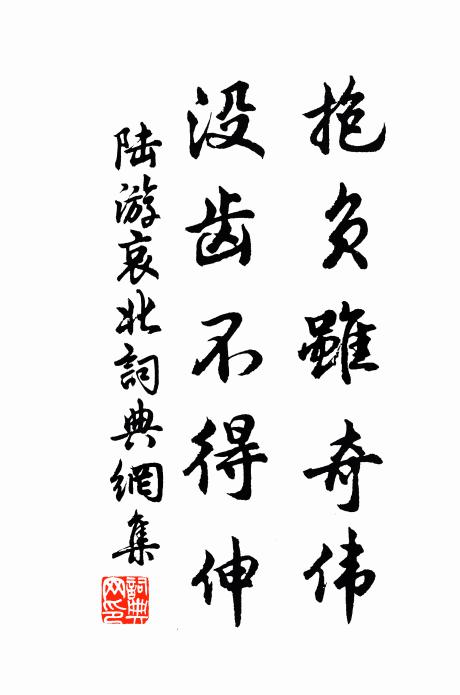 抱负雖奇伟
没齿不得伸
陆游哀北詞典網集
詞典网印